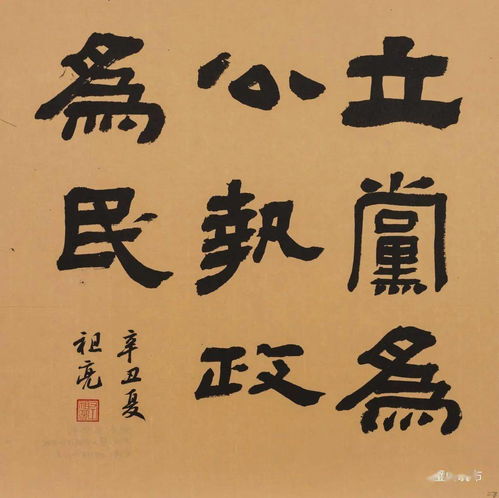 立黨為
公執政
為民
辛丑夏
祖亮